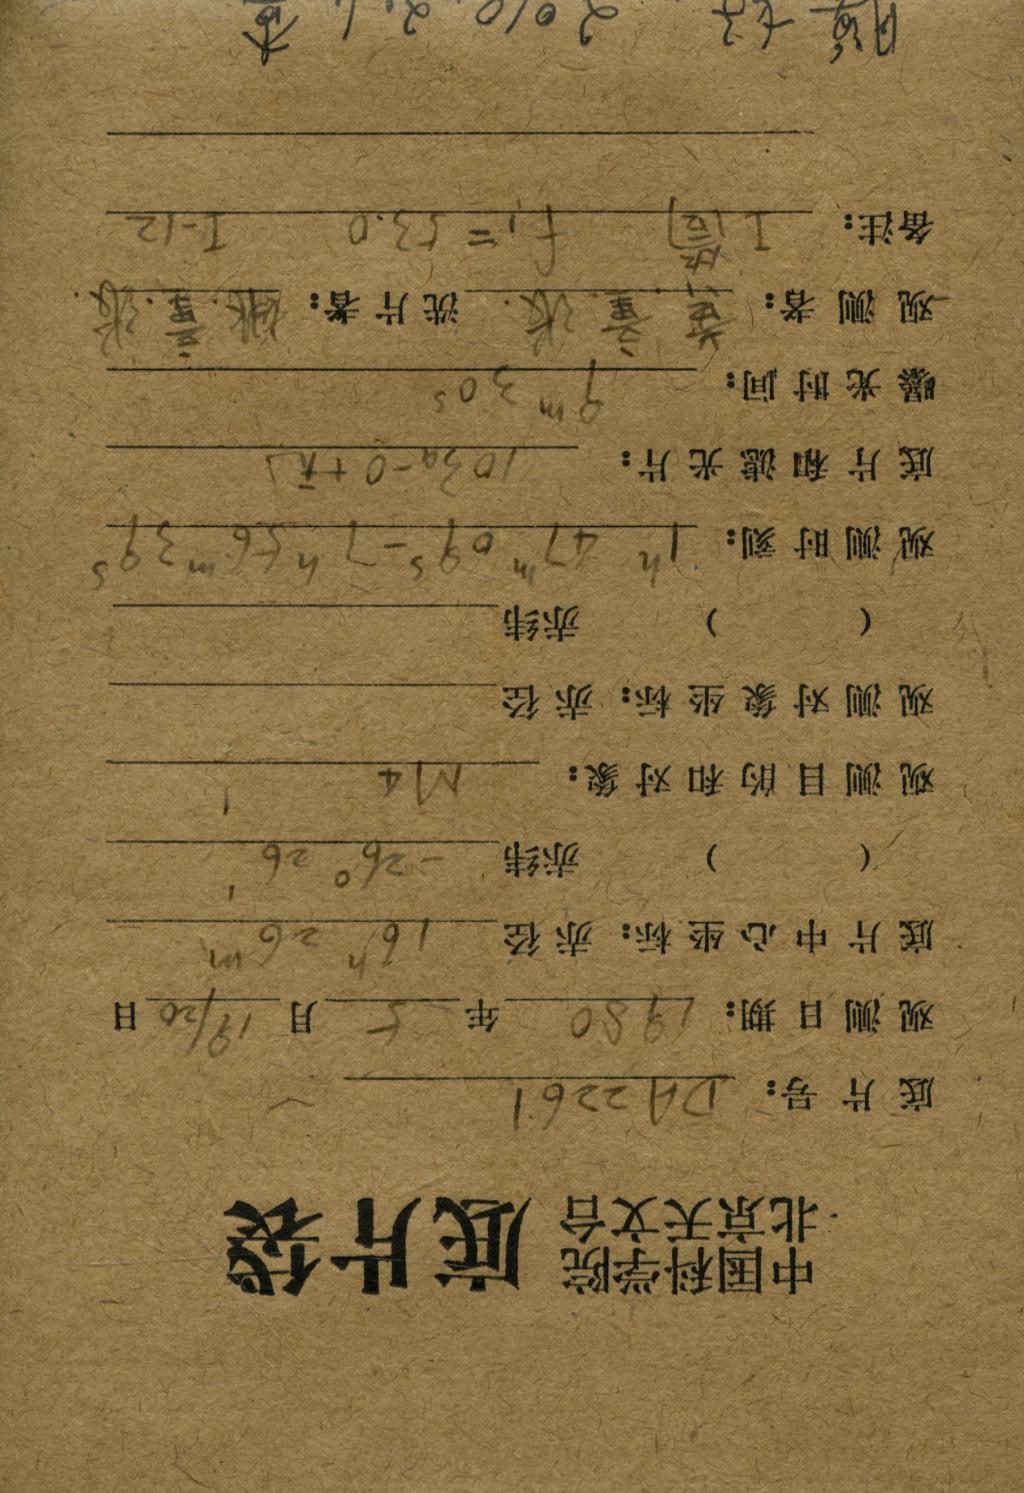 中国科学院
北京天文台
底片袋
底片号: DA2261
观测日期: 1980年5月19/20日
底片中心坐标: 赤径 16h 26m
( ) 赤纬 -26° 26′
观测目的和对象: M4
观测对象坐标: 赤径
( ) 赤纬
观测时刻: 1h 47m 09s - 7h 56m 39s
底片和滤光片: 103a-O+
曝光时间: 9m 30s
观测者: 童.张 洗片者: 姚.童.张
备注: I f1=53.0 I-12
2010.2.1 查